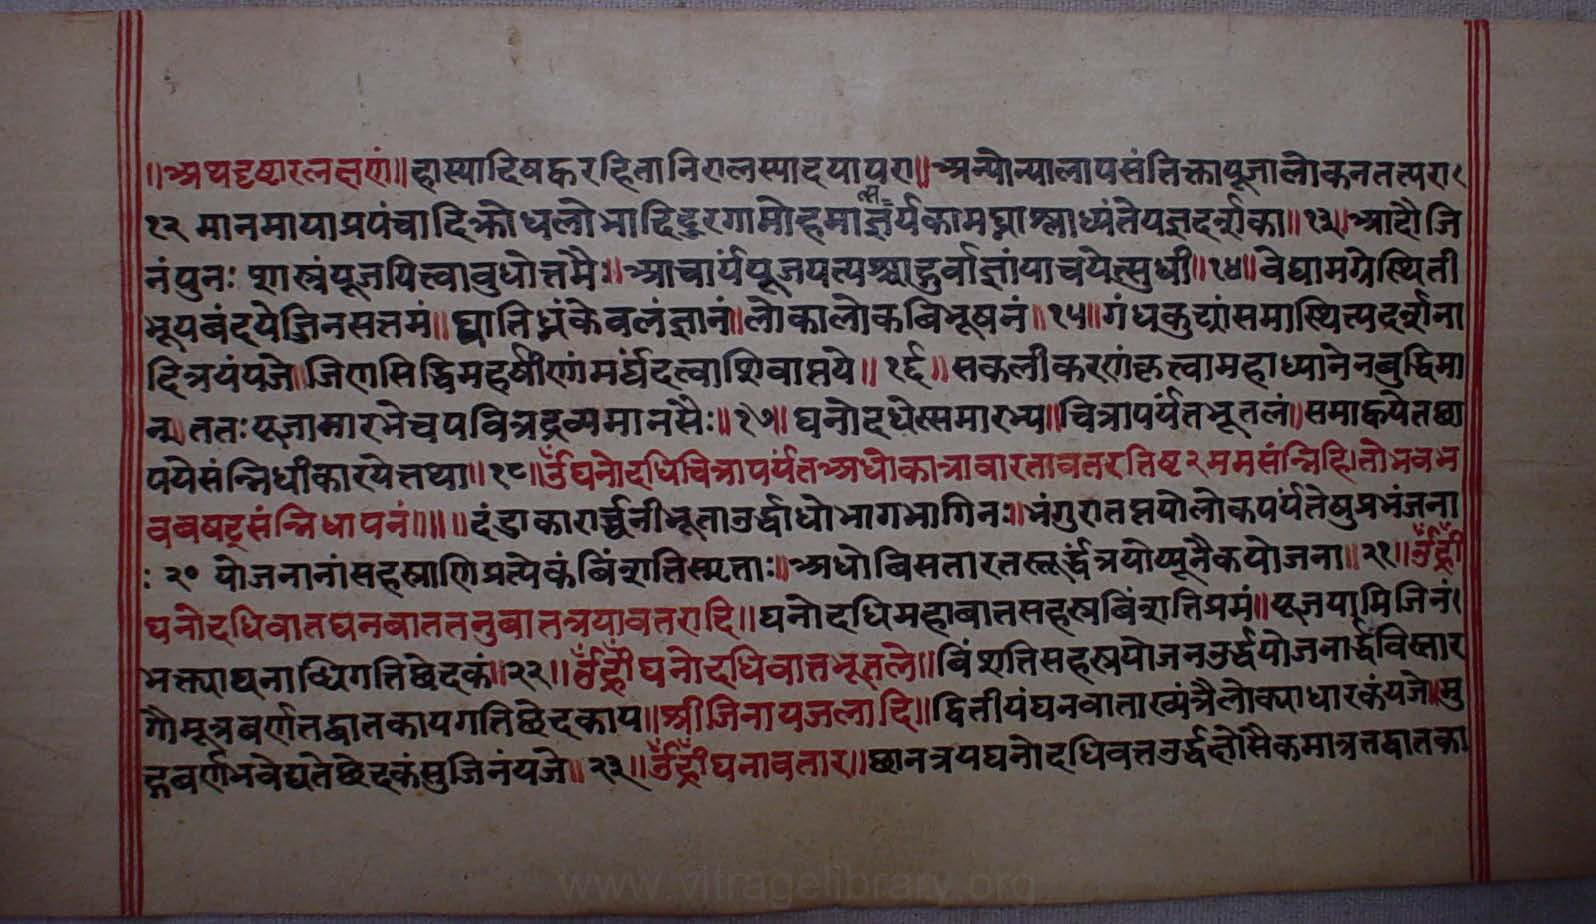 ॥अथदृष्टारलक्षणं॥हास्यादिषट्करहितानिरालस्यादयापरा॥अन्योन्यालापसंतिक्तापूजालोकनतत्परा
१२ मानमायाप्रपंचादिक्रोधलोभादिदूरगामोहमात्सर्यकामघ्नाश्लाध्यंतेयज्ञदर्शका॥१३॥आदौजि
नंपुनः शास्त्रंपूजयित्वाबुधोत्तमैः॥आचार्यंपूजयत्पश्चाद्गुर्वाज्ञांयाचयेत्सुधी॥१४॥वेद्यामग्रेस्थिती
भूयबंदयेज्जिनसत्तमं॥घातिघ्नंकेवलंज्ञानं॥लोकालोकबिभूषनं॥१५॥गंधकुट्यांसमास्थित्यदर्शना
दित्रयंयजे॥जिणसिद्धिमहर्षीणांमर्घ्यंदत्वाशिवाप्तये॥१६॥सकलीकरणंकृत्त्वामहाध्यानेनबुद्धिमा
न्॥ततःपूजामारभेच्चपवित्रद्रव्यमानसैः॥१७॥घनोदधेत्समारभ्य॥चित्रापर्यंतभूतलं॥समाह्वयेतछा
पयेसंन्निधीकारयेत्तथा॥१८॥ॐघनोदधिचित्रापर्यंतअधोकात्रावारतावतरतिष्ट२ममसंन्निहितोभवभ
ववषट्संन्निधापनं॥॥॥दंडाकाराघनीभूताउर्द्धाधोभागभागिनः॥भंगुरातप्तयोलोकपर्यंतेषुप्रभंजना
ः२० योजनानांसहस्त्राणिप्रत्येकंबिंशतिस्मृताः॥अधोबिसतारतस्तूर्द्धंत्रयोप्यूनैकयोजना॥२१॥ॐह्रीं
घनोदधिवातघनबाततनुबातत्रयावतरादि॥घनोदधिमहाबातसहस्त्रबिंशतिप्रमं॥पूजयामिजिनं
भक्त्याघनाब्धिगतिछेदकं॥२२॥ॐह्रीँघनोदधिवातभूतले॥बिंशतिसहस्त्रयोजनउर्द्धयोजनार्द्धविस्तार
गौमूत्रबर्णतद्वातकायगतिछेदकाय॥श्रीजिनायजलादि॥द्वितीयंघनवाताख्यंत्रैलोक्याधारकंयजे॥मु
द्गबर्णभवेद्यतेछेदकंसुजिनंयजे॥२३॥ॐह्रीँघनावतार॥छानत्रयघनोदधिवतउर्द्धह्नोसैकमात्रतद्वातका
www.vitragelibrary.org